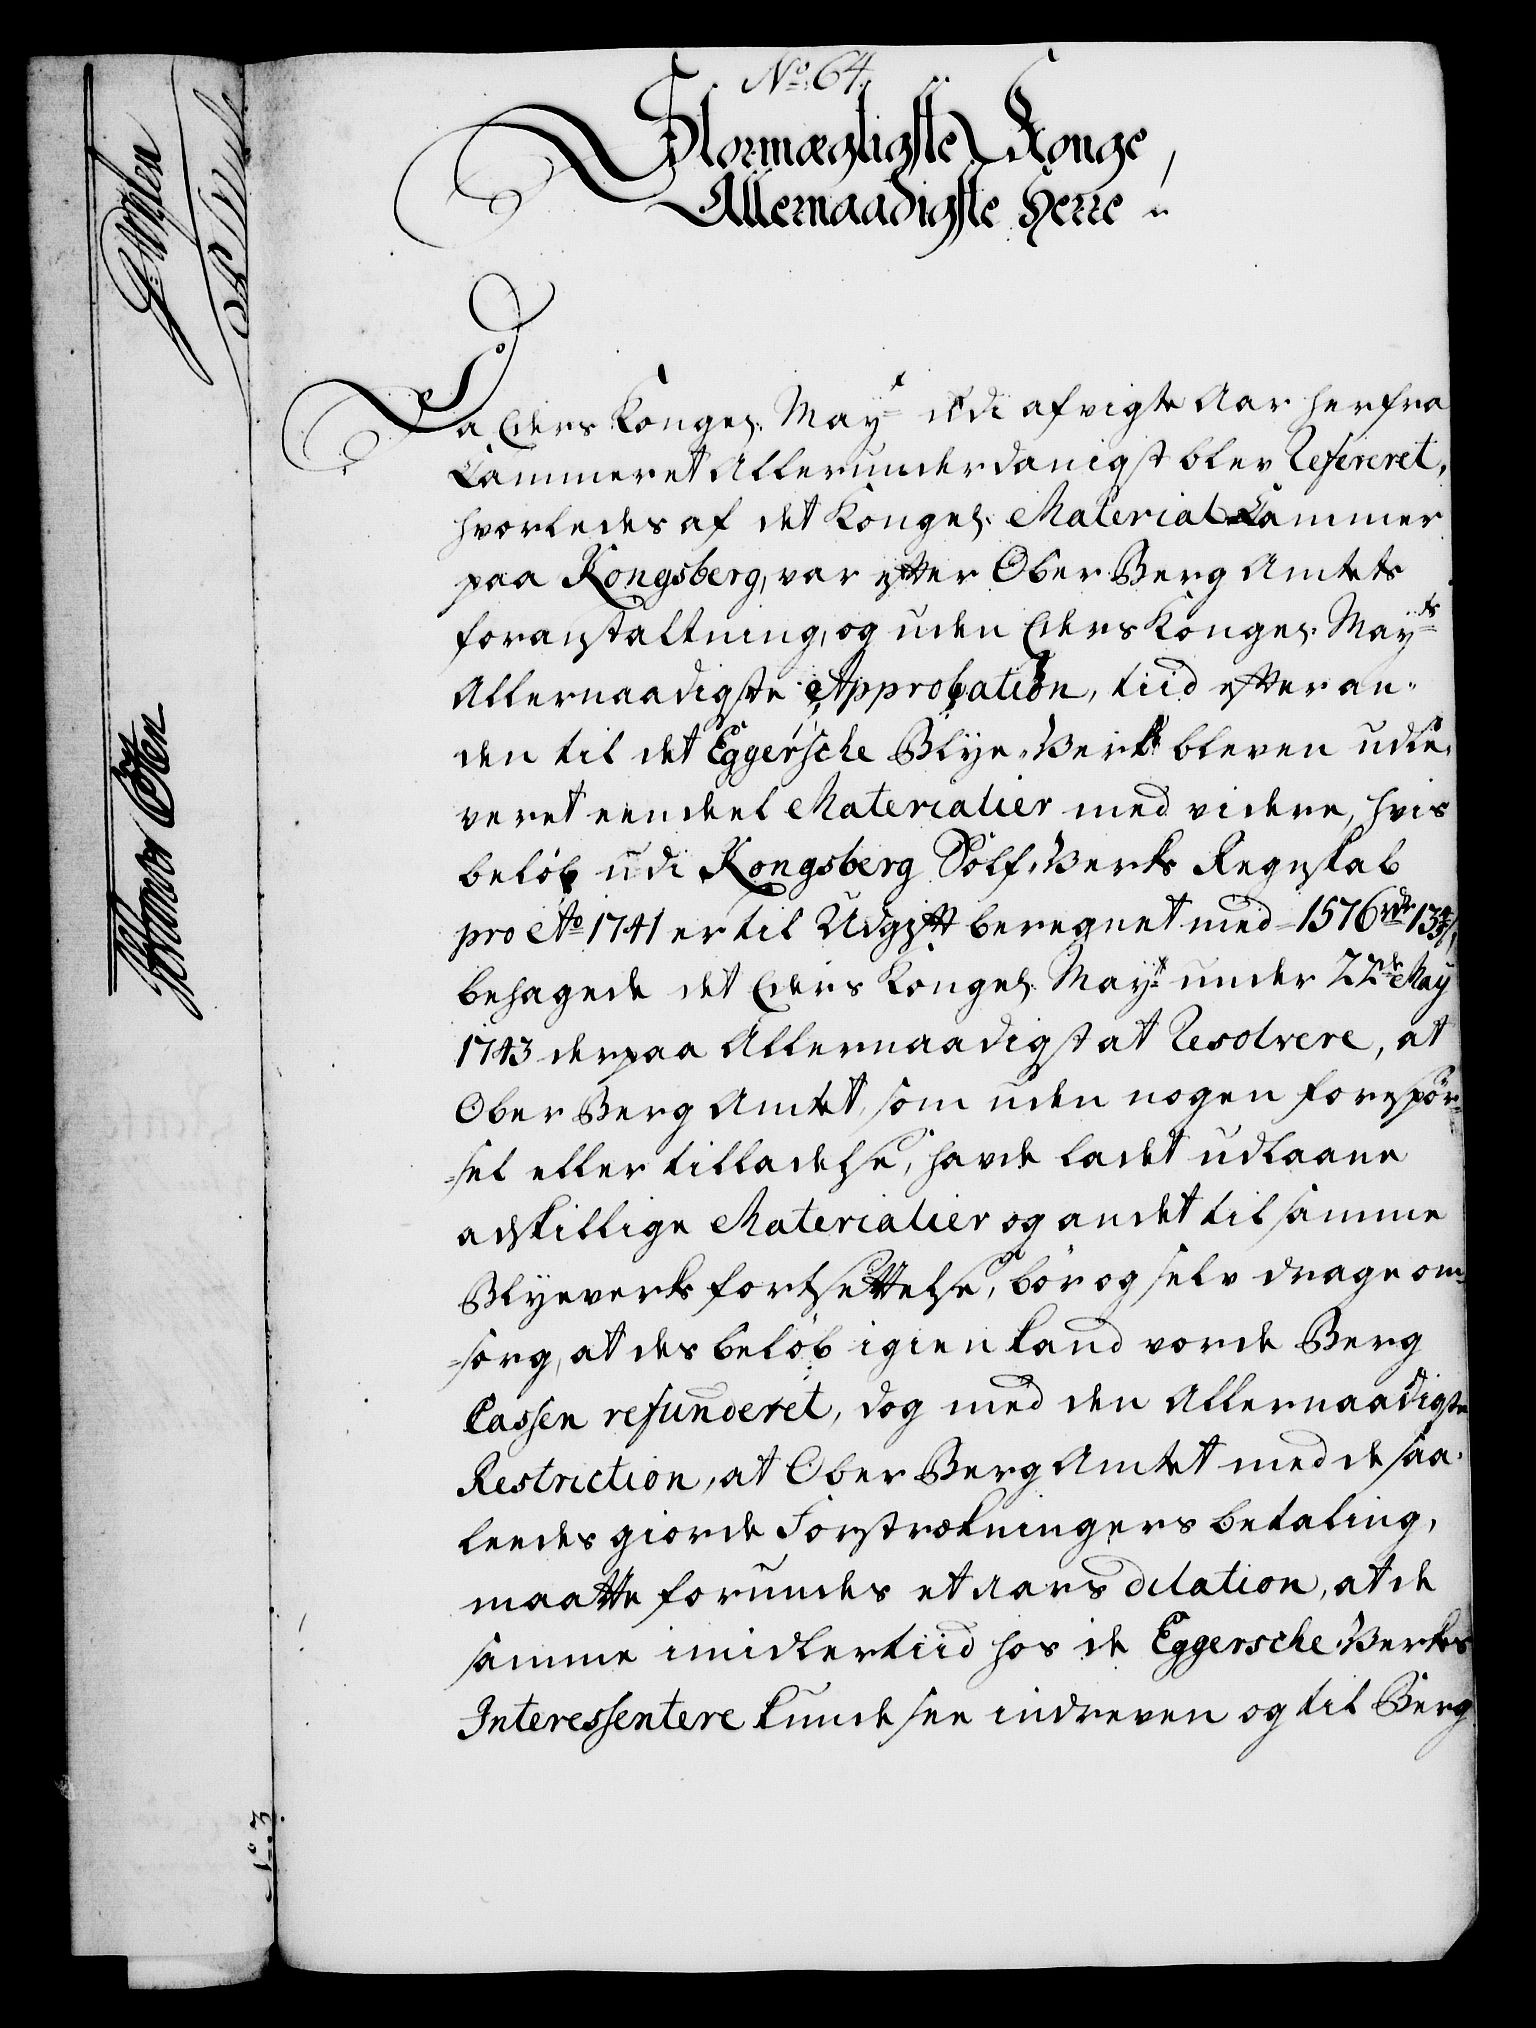 No: 64.
Stormægtigste Konge,
Allernaadigste Herre
Da Eders Kongel. Mayt udi afvigte Aar herfra
Cammeret Allerunderdanigst blev Refereret,
hvorledes af det Kongel. Material-Cammer
paa Kongsberg, var efter Ober Berg Amtets
foranstaltning, og uden Eders Kongel. Mayts
Allernaadigste Approbation, tiid efter an-
den til det Eggersche Blye-Verk bleven udle-
veret een deel Materialier med videre, hvis
beløb udi Kongsberg Sølf-Verks Regnskab
pro Ao 1741 er til Udgift beregnet med 1576 rdr
behagede det Eders Kongel. Mayt under 22de May
1743 derpaa Allernaadigst at Resolvere, at
Ober Berg Amtet, som uden nogen forespør-
-sel eller tilladelse, havde ladet udlaane
adskillige Materialier og andet til samme
Blyeverks fortsettelse, bør og selv drage om-
-sorg, at des beløb igien kand vorde Berg
Cassen refunderet, dog med den Allernaadigste
Restriction, at Ober Berg Amtet med de saa-
leedes giorde Forstrækningers betaling,
maatte forundes et aars dilation, at de
samme imidlertiid hos de Eggersche Verks
Interessentere kunde see indreven og til Berg
No. 3